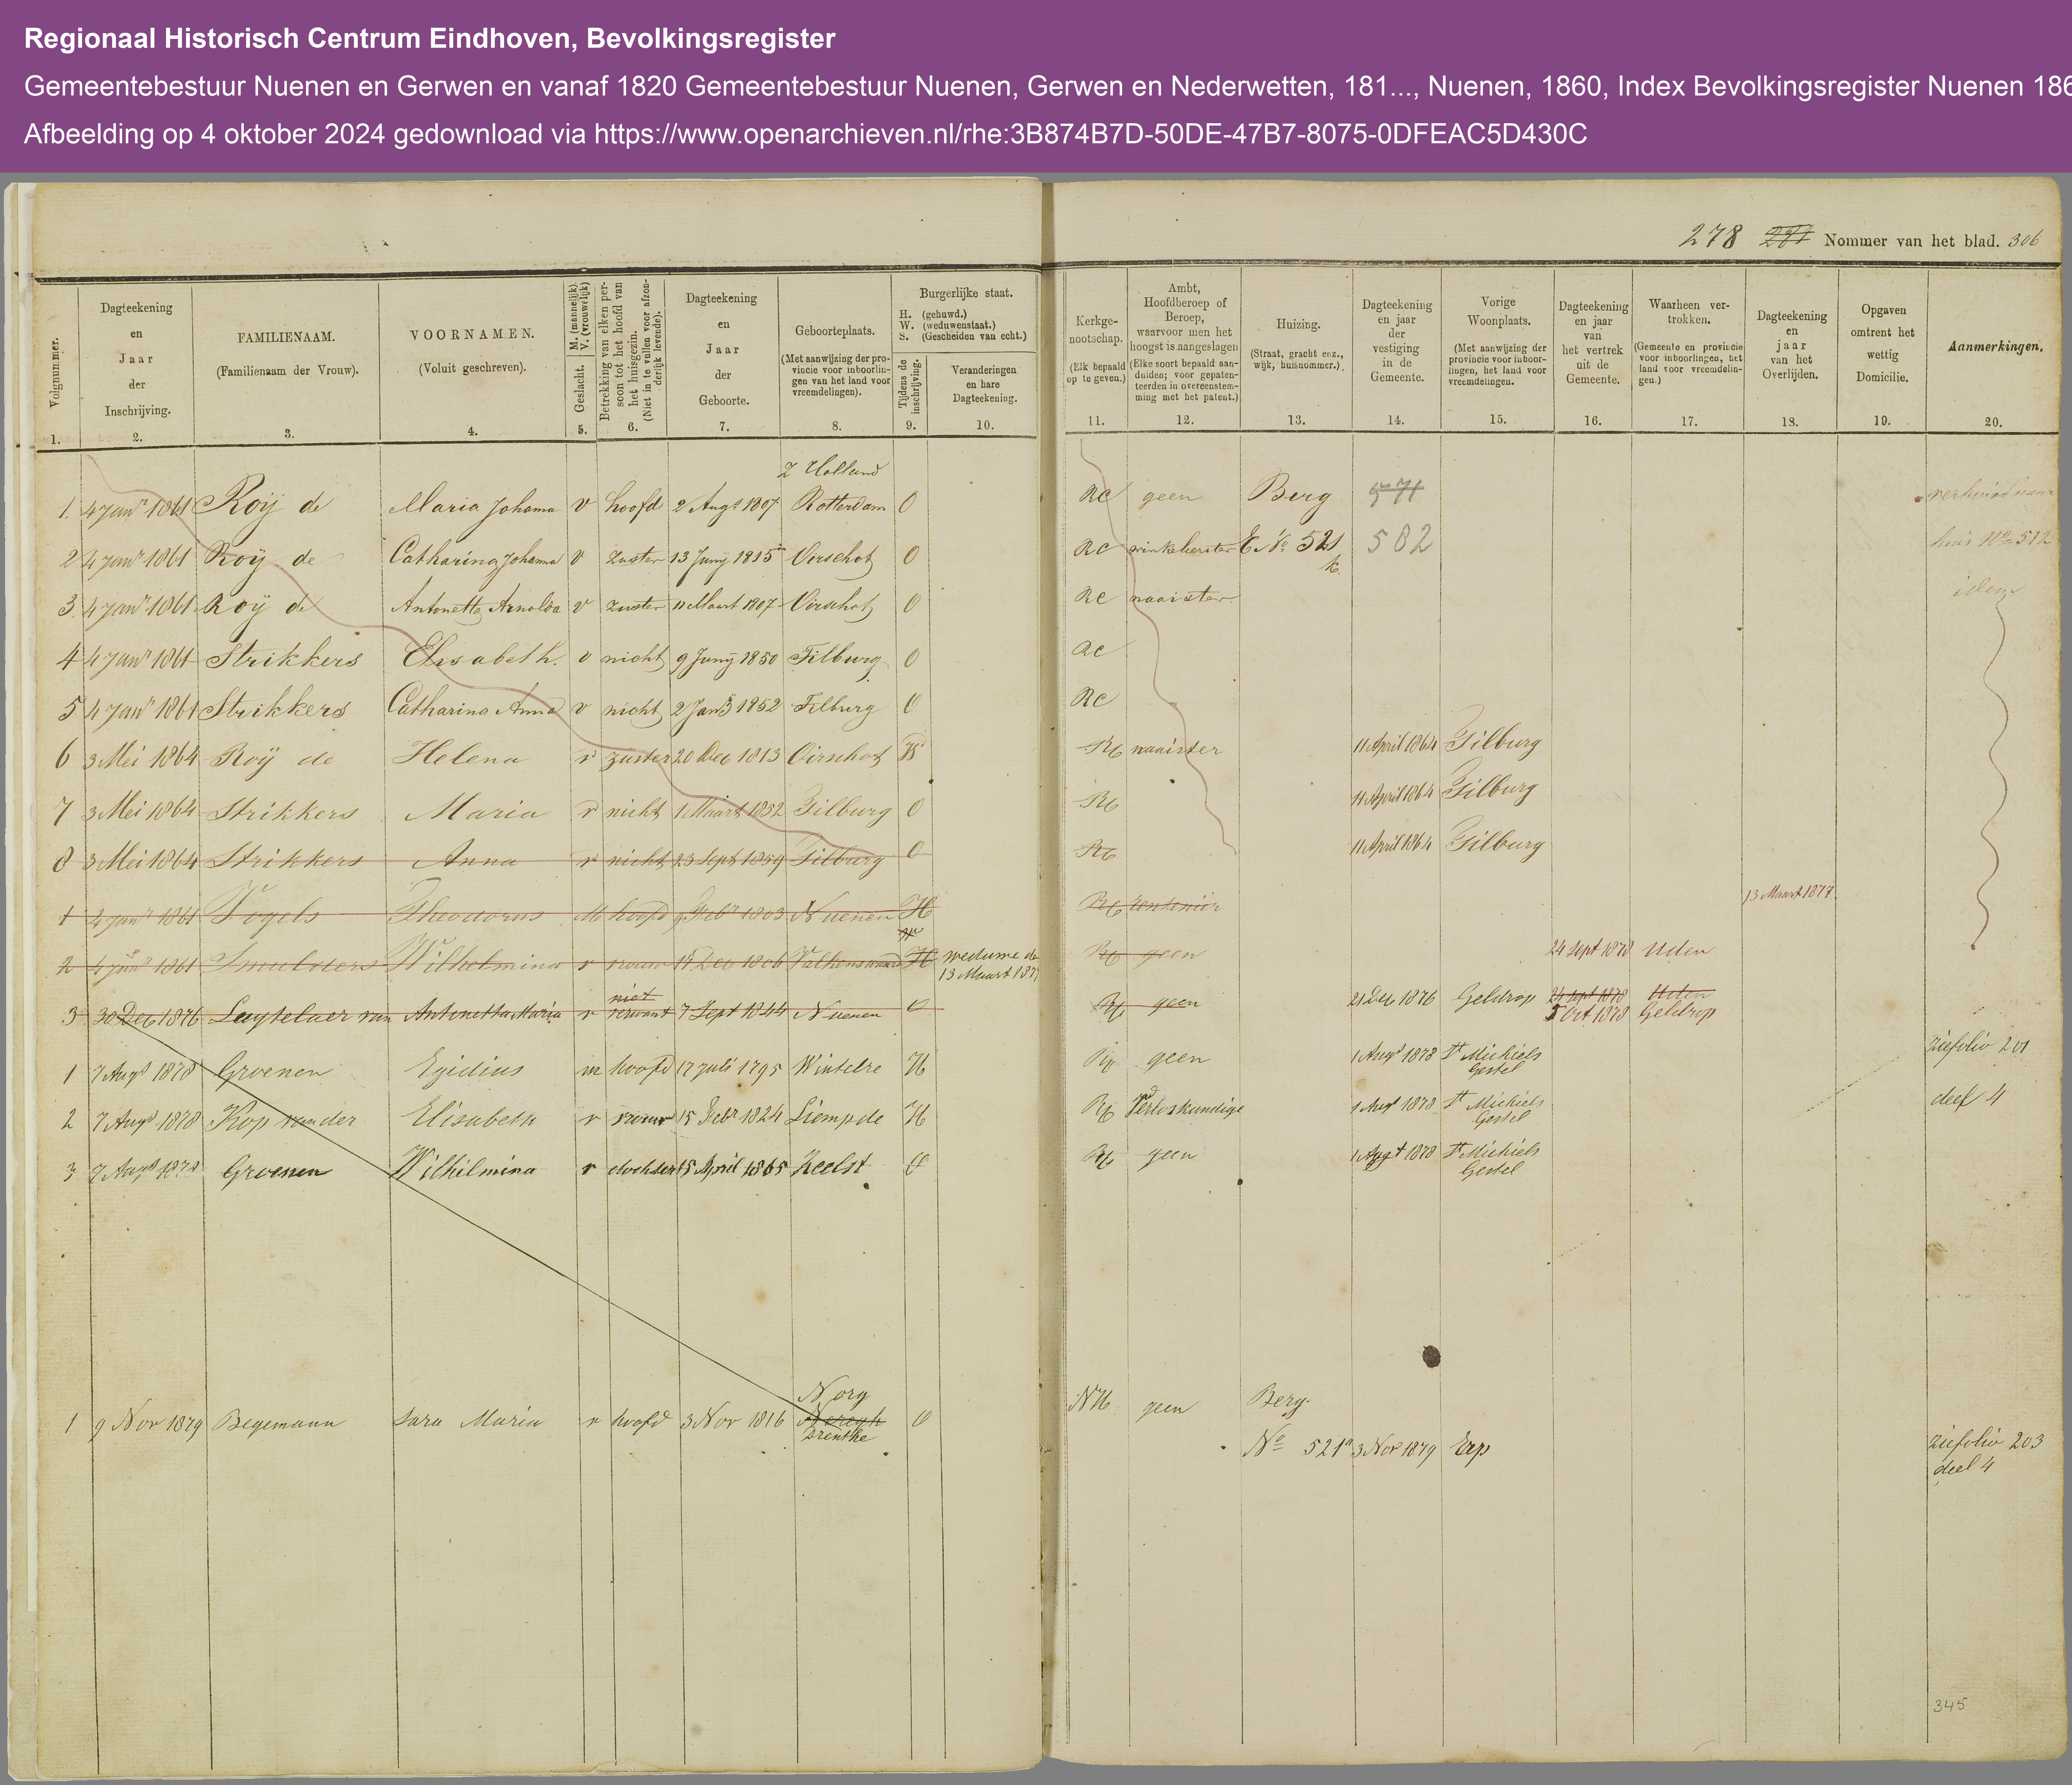 Regionaal Historisch Centrum Eindhoven, Bevolkingsregister
Gemeentebestuur Nuenen en Gerwen en vanaf 1820 Gemeentebestuur Nuenen, Gerwen en Nederwetten, 181..., Nuenen, 1860, Index Bevolkingsregister Nuenen 186
Afbeelding op 4 oktober 2024 gedownload via https://www.openarchieven.nl/rhe:3B874B7D-50DE-47B7-8075-0DFEAC5D430C
278 Nommer van het blad. 306
Volgnummer. 1.
Dagteekening en Jaar der Inschrijving. 2.
FAMILIENAAM. (Familienaam der Vrouw). 3.
VOORNAMEN. (Voluit geschreven). 4.
Geslacht. M. (mannelijk). V. (vrouwelijk) 5.
Betrekking van elken persoon tot het hoofd van het huisgezin. (Niet in te vullen voor afzonderlijk levende). 6.
Dagteekening en Jaar der Geboorte. 7.
Geboorteplaats. (Met aanwijzing der provincie voor inboorlingen van het land voor vreemdelingen). 8.
Burgerlijke staat. H. (gehuwd.) W. (weduwenstaat.) S. (Gescheiden van echt.)
Tijdens de inschrijving. 9.
Veranderingen en hare Dagteekening. 10.
Kerkgenootschap. (Elk bepaald op te geven.) 11.
Ambt, Hoofdberoep of Beroep, waarvoor men het hoogst is aangeslagen (Elke soort bepaald aanduiden; voor gepatenteerden in overeenstemming met het patent.) 12.
Huizing. (Straat, gracht enz., wijk, huisnommer.) 13.
Dagteekening en jaar der vestiging in de Gemeente. 14.
Vorige Woonplaats. (Met aanwijzing der provincie voor inboorlingen, het land voor vreemdelingen. 15.
Dagteekening en jaar van het vertrek uit de Gemeente. 16.
Waarheen vertrokken. (Gemeente en provincie voor inboorlingen, het land voor vreemdelingen.) 17.
Dagteekening en jaar van het Overlijden. 18.
Opgaven omtrent het wettig Domicilie. 19.
Aanmerkingen. 20.
Z Holland
1. 4 Janr 1861 Roij de Maria Johanna v hoofd 2 Augt 1807 Rotterdam O RC geen Berg 571 verhuisd naar
2 4 Janr 1861 Roij de Catharina Johanna v zuster 13 Junij 1815 Oirschot O RC winkelierster E No 521 k. 582 huis No 512
3. 4 Janr 1861 Roij de Antonetta Arnolda v zuster 11 Maart 1807 Oirschot O RC naaister idem
4 4 Janr 1861 Strikkers Elisabeth. v nicht 9 Junij 1850 Tilburg O RC
5 4 Janr 1861 Strikkers Catharina Anna v nicht 2 Janij 1852 Tilburg O RC
6 3 Mei 1864 Roij de Helena v zuster 20 Dec 1813 Oirschot W RC naaister 11 April 1864 Tilburg
7 3 Mei 1864 Strikkers Maria v nicht 1 Maart 1852 Tilburg O RC 11 April 1864 Tilburg
8 3 Mei 1864 Strikkers Anna v nicht 23 Sept 1859 Tilburg O RC 11 April 1864 Tilburg
1 4 Janr 1861 Vogels Theodorus M hoofd 9 Febr 1803 Nuenen H RC rentenier 13 Maart 1877
2 4 Janr 1861 Smulders Wilhelmina v vrouw Dec 1806 Valkenswaard H W weduwe de 13 Maart 1877 RC geen 24 Sept 1878 Uden
3 30 Dec 1876 Luytelaer van Antonetta Maria v niet verwant 7 Sept 1844 Nuenen O RC geen 21 Dec 1876 Geldrop 24 Sept 1878 Uden
5 Oct 1878 Geldrop
1 7 Augt 1878 Groenen Egidius m hoofd 17 Juli 1795 Wintelre H RC geen 1 Augt 1878 St Michiels Gestel Zie folio 201
2 7 Augt 1878 Kop van der Elisabeth v vrouw 15 Febr 1824 Liempde H RC Verloskundige 1 Augt 1878 St Michiels Gestel deel 4
3 7 Augt 1878 Groenen Wilhilmina v dochter 15 April 1865 Zeelst O RC geen 1 Augt 1878 St Michiels Gestel
Norg
1 9 Nov 1879 Begemann Sara Maria v hoofd 3 Nov 1816 Drenthe O NH geen Berg.
No 521a 3 Nov 1879 Erp Zie folio 203
deel 4
345